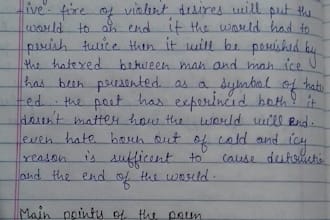 ive. fire of violent desires will put the
world to an end if the world had to
perish twice then it will be perished by
the hatered between man and man ice
has been presented as a symbol of hatr
-ed. the poet has experinced both it
doesn't matter how the world will end.
even hate born out of cold and icy
reason is sufficent to cause destructio
and the end of the world.
Main points of the poem